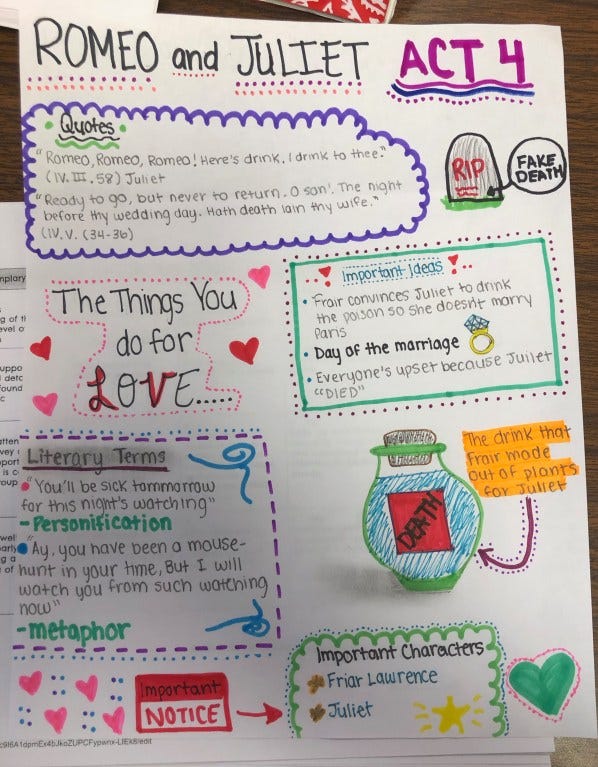 ROMEO and JULIET ACT 4
Quotes
"Romeo, Romeo, Romeo! Here's drink. I drink to thee."
(IV. III. 58) Juliet
"Ready to go, but never to return. O son', The night
before thy wedding day. Hath death lain thy wife."
(IV. V. (34-36)
RIP
FAKE
DEATH
The Things You
do for
LOVE.....
Important Ideas
• Frair convinces Juliet to drink
the poison so she doesn't marry
Paris
• Day of the marriage
• Everyone's upset because Juliet
"DIED"
Literary Terms
"You'll be sick tommorrow
for this night's watching"
-Personification
"Ay, you have been a mouse-
hunt in your time, But I will
watch you from such watching
now"
-metaphor
DEATH
The drink that
Frair made
out of plants
for Juliet
Important
NOTICE
Important Characters
Friar Lawrence
Juliet